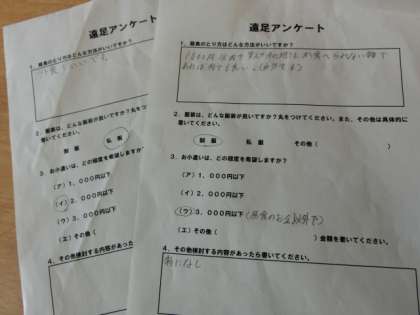 遠足アンケート
1、昼食のとり方はどんな方法がいいですか?
2、服装は、どんな服装が良いですか?丸をつけてください。
書いてください。
制服
私服
3、お小遣いは、どの程度を希望しますか?
(ア)1,000円以下
(イ)2,000円以下
(ウ)3,000円以下
(エ)その他(
4、その他検討する内容があった
遠足アンケート
1、昼食のとり方はどんな方法がいいですか?
2、服装は、どんな服装が良いですか?丸をつけてください。また、その他は具体的に
書いてください。
制服
私服
その他(
)
3、お小遣いは、どの程度を希望しますか?
(ア)1,000円以下
(イ)2,000円以下
(ウ)3,000円以下(昼食のお金以外で)
(エ)その他(
)金額を書いてください。
4、その他検討する内容があったら書いてください。
特になし